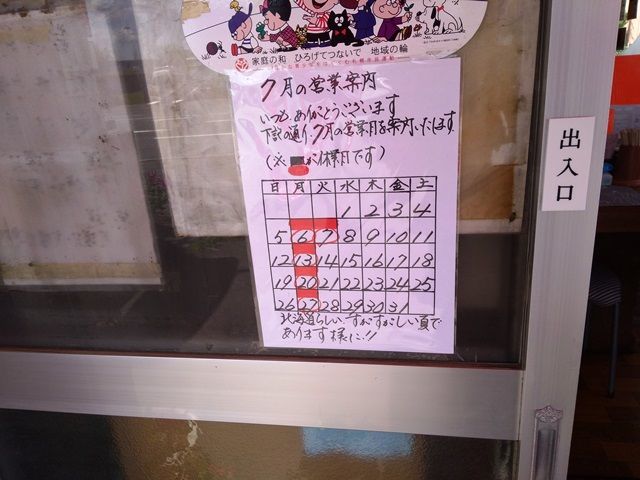 家庭の和 ひろげてつないで 地域の輪
7月の営業案内
いつも、ありがとうございます
下記の通り、7月の営業日を案内いたします
(※ が休業日です)
日 月 火 水 木 金 土
1 2 3 4
5 6 7 8 9 10 11
12 13 14 15 16 17 18
19 20 21 22 23 24 25
26 27 28 29 30 31
北海道らしい、すがすがしい夏で
あります様に!!
出入口